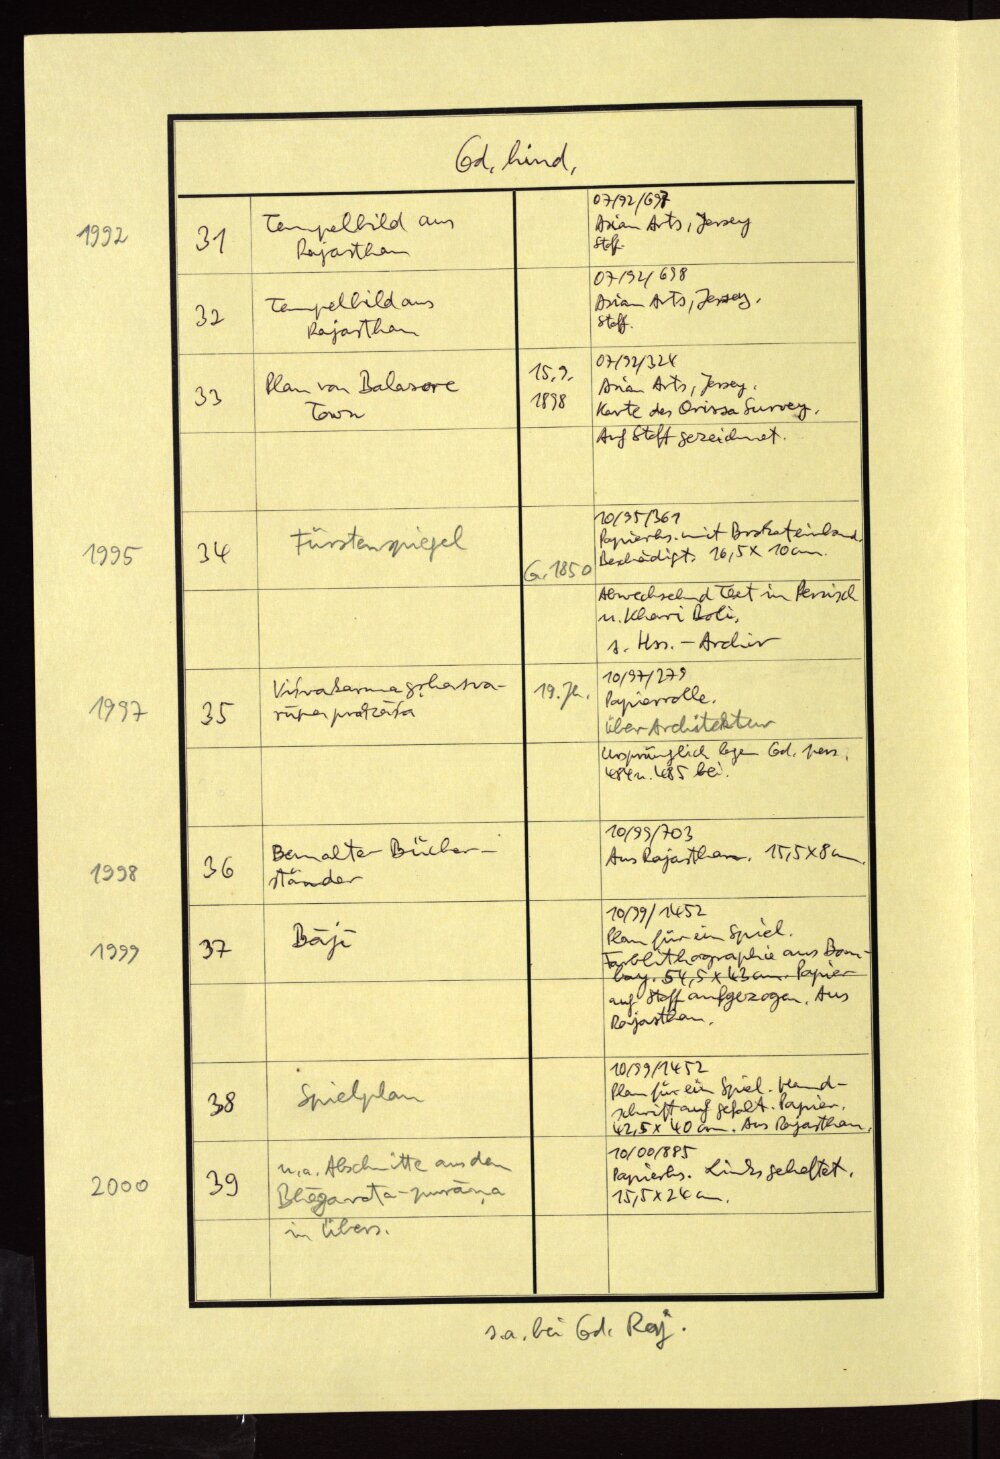 Cod. hind.
1992
31
Tempelbild aus
Rajasthan
07/92/697
Asian Arts, Jersey
Stoff.
32
Tempelbild aus
Rajasthan
07/92/698
Asian Arts, Jersey.
Stoff.
33
Plan von Balasore
Town
15.9.
1898
07/92/324
Asian Arts, Jersey.
Karte des Orissa Survey.
Auf Stoff gezeichnet.
1995
34
Fürstenspiegel
Ca. 1850
10/95/361
Papierhs. mit Brokateinband.
Beschädigt. 16,5 x 10 cm.
Abwechselnd Text in Persisch
u. Khari Boli.
s. Hss. - Archiv
1997
35
19. Jh.
10/97/279
Papierrolle.
über Architektur
Ursprünglich lagen Cod. pers.
484 u. 485 bei.
1998
36
Bemalter Bücher-
ständer
10/99/703
Aus Rajasthan. 15,5 x 8 cm.
1999
37
Bājī
10/99/1452
Plan für ein Spiel.
Farblithographie aus Bom-
bay. 54,5 x 43 cm. Papier
auf Stoff aufgezogen. Aus
Rajasthan.
38
Spielplan
10/99/1452
Plan für ein Spiel. Hand-
schrift auf gefalt. Papier.
42,5 x 40 cm. Aus Rajasthan.
2000
39
u.a. Abschnitte aus dem
Bhāgavata-purāṇa
in Übers.
10/00/885
Papierhs. Links geheftet.
15,5 x 24 cm.
s.a. bei Cod. Raj.